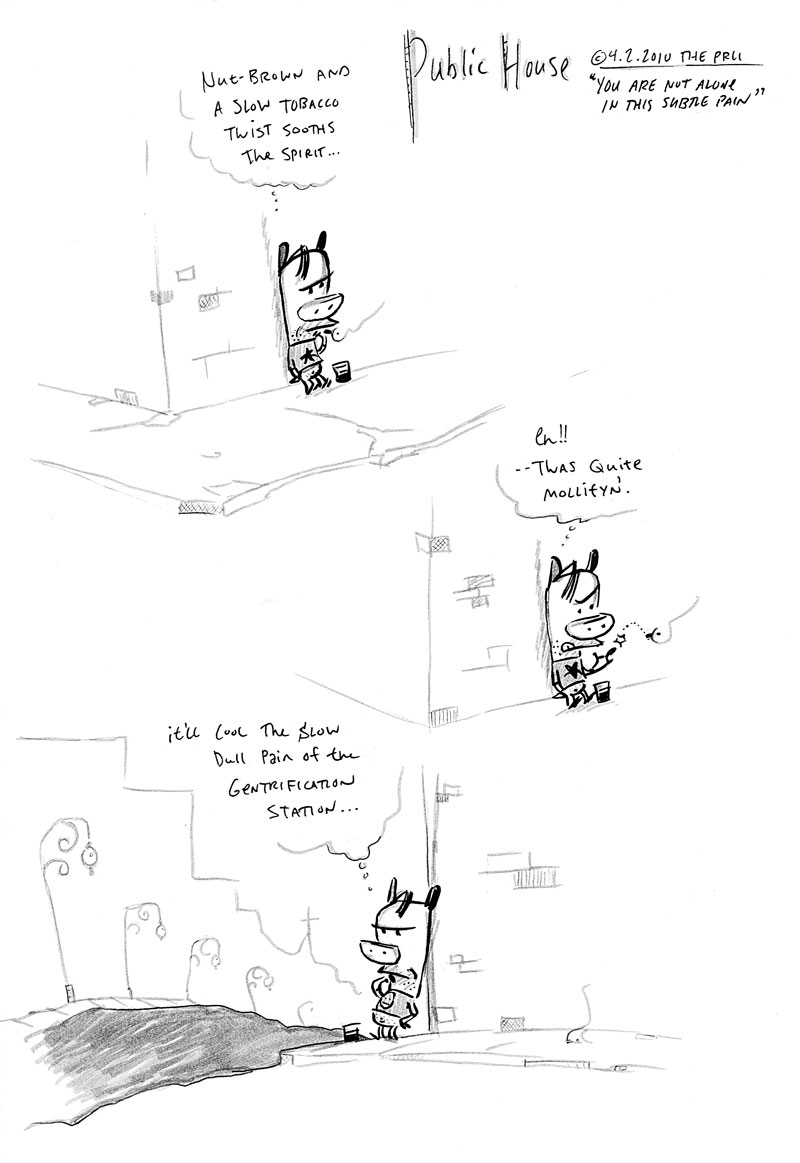 Public House
©4.2.2010 THE PRU
"YOU ARE NOT ALONE
IN THIS SUBTLE PAIN"
NUT-BROWN AND
A SLOW TOBACCO
TWIST SOOTHS
THE SPIRIT...
Eh!!
--TWAS QUITE
MOLLIFYN'.
it'll COOL THE SLOW
DULL PAIN OF THE
GENTRIFICATION
STATION...